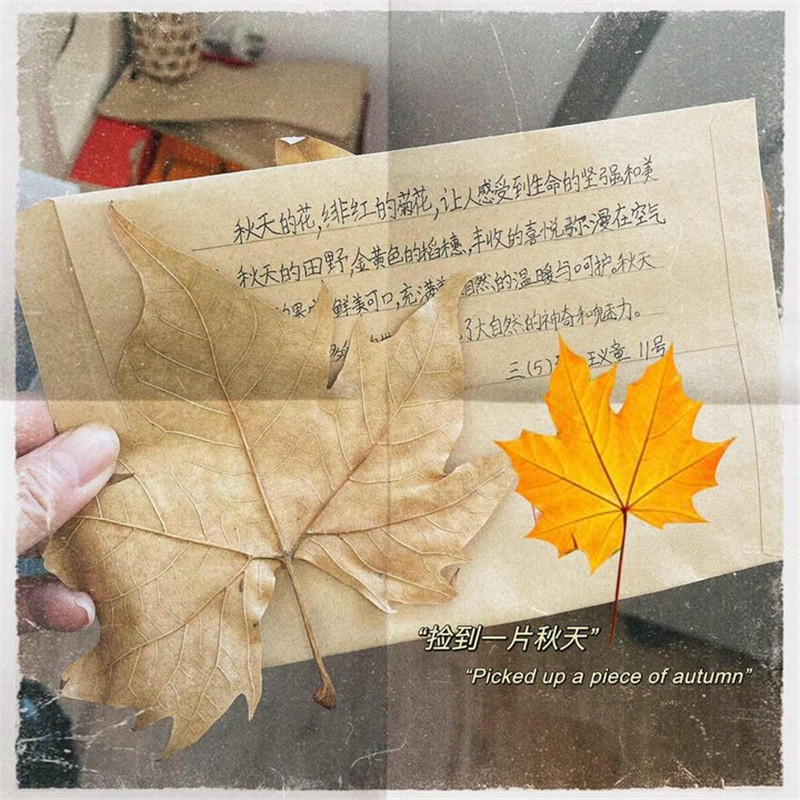 秋天的花,绯红的菊花,让人感受到生命的坚强和美
秋天的田野,金黄色的稻穗,丰收的喜悦弥漫在空气
鲜美可口,充满 自然的温暖与呵护。秋天
了大自然的神奇和魅力。
三(5) 童 11号
“捡到一片秋天”
“Picked up a piece of autumn”